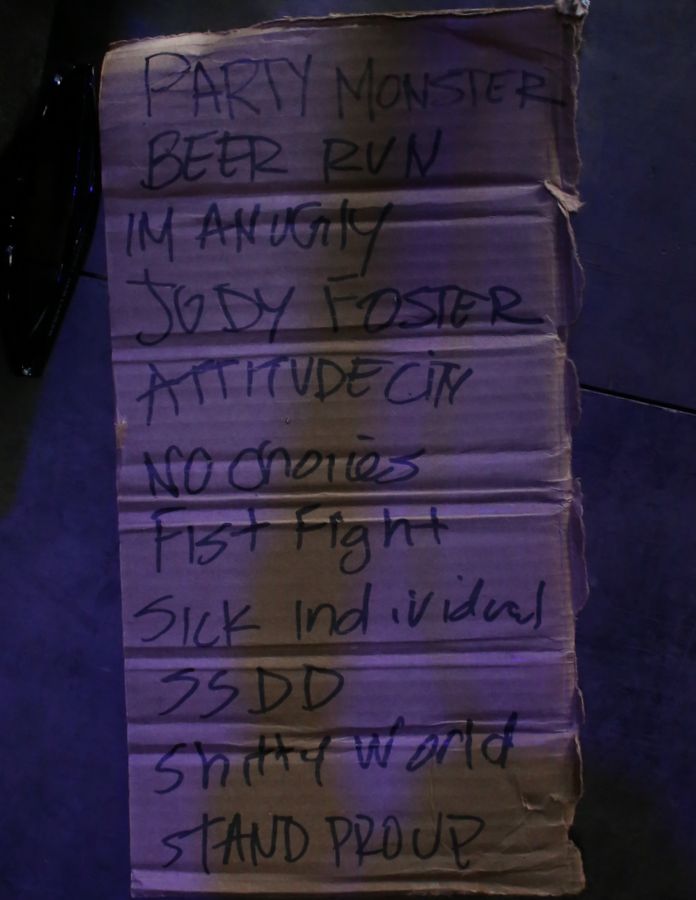 PARTY MONSTER
BEER RUN
IM AN UGlY
JODY FOSTER
ATTITUDE CiTY
NO chories
Fist Fight
Sick Individual
SSDD
Shitty World
STAND PROUD